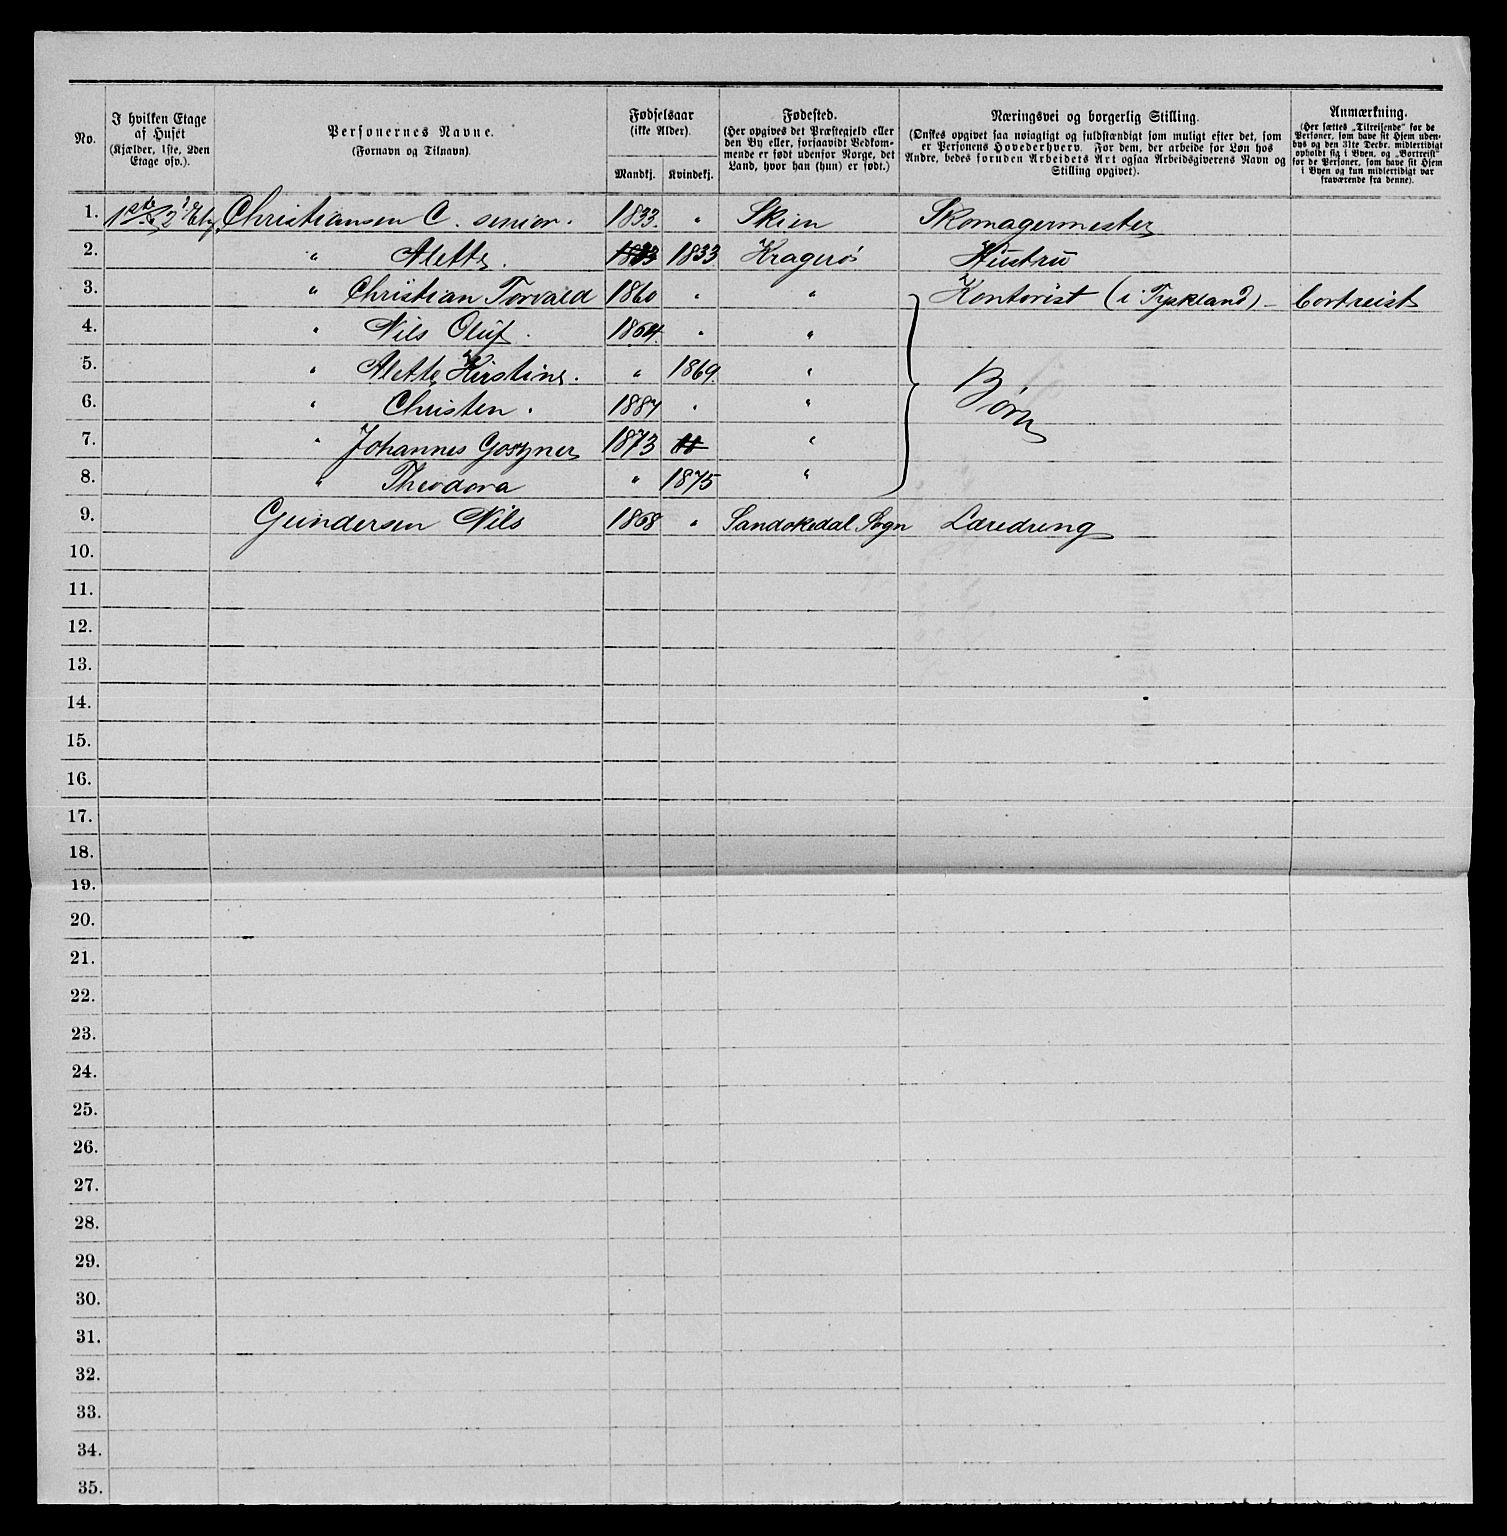 No.
I hvilken Etage
af Huset
(Kjælder, 1ste, 2den
Etage osv.).
Personernes Navne.
(Fornavn og Tilnavn).
Fødselsaar
(ikke Alder).
Mandkj. Kvindekj.
Fødested.
(Her opgives det Præstegjeld eller
den By eller, forsaavidt Vedkom-
mende er født udenfor Norge, det
Land, hvor han (hun) er født.)
Næringsvei og borgerlig Stilling.
(Ønskes opgivet saa nøiagtigt og fuldstændigt som muligt efter det, som
er Personens Hovederhverv. For dem, der arbeide for Løn hos
Andre, bedes foruden Arbeidets Art ogsaa Arbeidsgiverens Navn og
Stilling opgivet).
Anmærkning.
(Her sættes „Tilreisende“ for de
Personer, som have sit Hjem uden-
bys og den 31te Decbr. midlertidigt
opholdt sig i Byen, og „Bortreist“
for de Personer, som have sit Hjem
i Byen og kun midlertidigt var
fraværende fra denne).
1. 1ste & 2' Etg. Christiansen C. senior. 1833. " Skien Skomagermester
2. " Alette. 1833 1833 Kragerø Hustru
3. " Christian Torvald 1860 " " Kontorist (i Tyskland) - bortreist
4. " Nils Oluf. 1864. " "
5. " Alette Kirstine. " 1869. "
Børn
6. " Christen. 1887 " "
7. " Johannes Goszner 1873 11 "
8. " Theodora " 1875 "
9. Gundersen Nils 1868 " Sandøkedal Sogn Læredreng
10.
11.
12.
13.
14.
15.
16.
17.
18.
19.
20.
21.
22.
23.
24.
25.
26.
27.
28.
29.
30.
31.
32.
33.
34.
35.